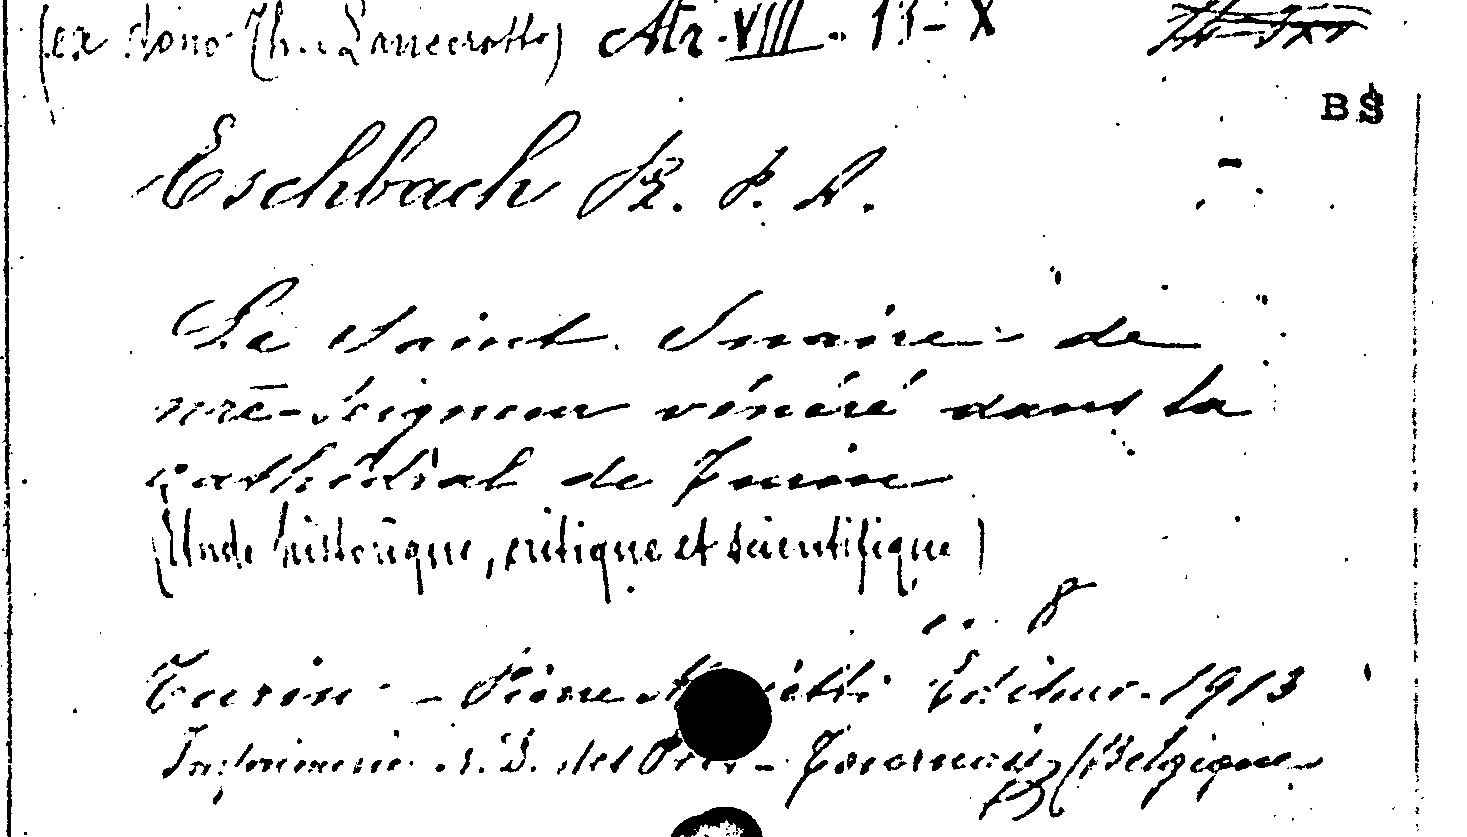 (ex dono Th. Lancerotto) Atr. VIII - 13 - X
BS
Eschbach R. P. A.
Le Saint Suaire de
nre-Seigneur vénéré dans la
cathédral de Turin
(Etude historique, critique et scientifique)
in 8
Turin - Pierre Marietti Editeur - 1913
Imprimerie - Tournai (Belgique